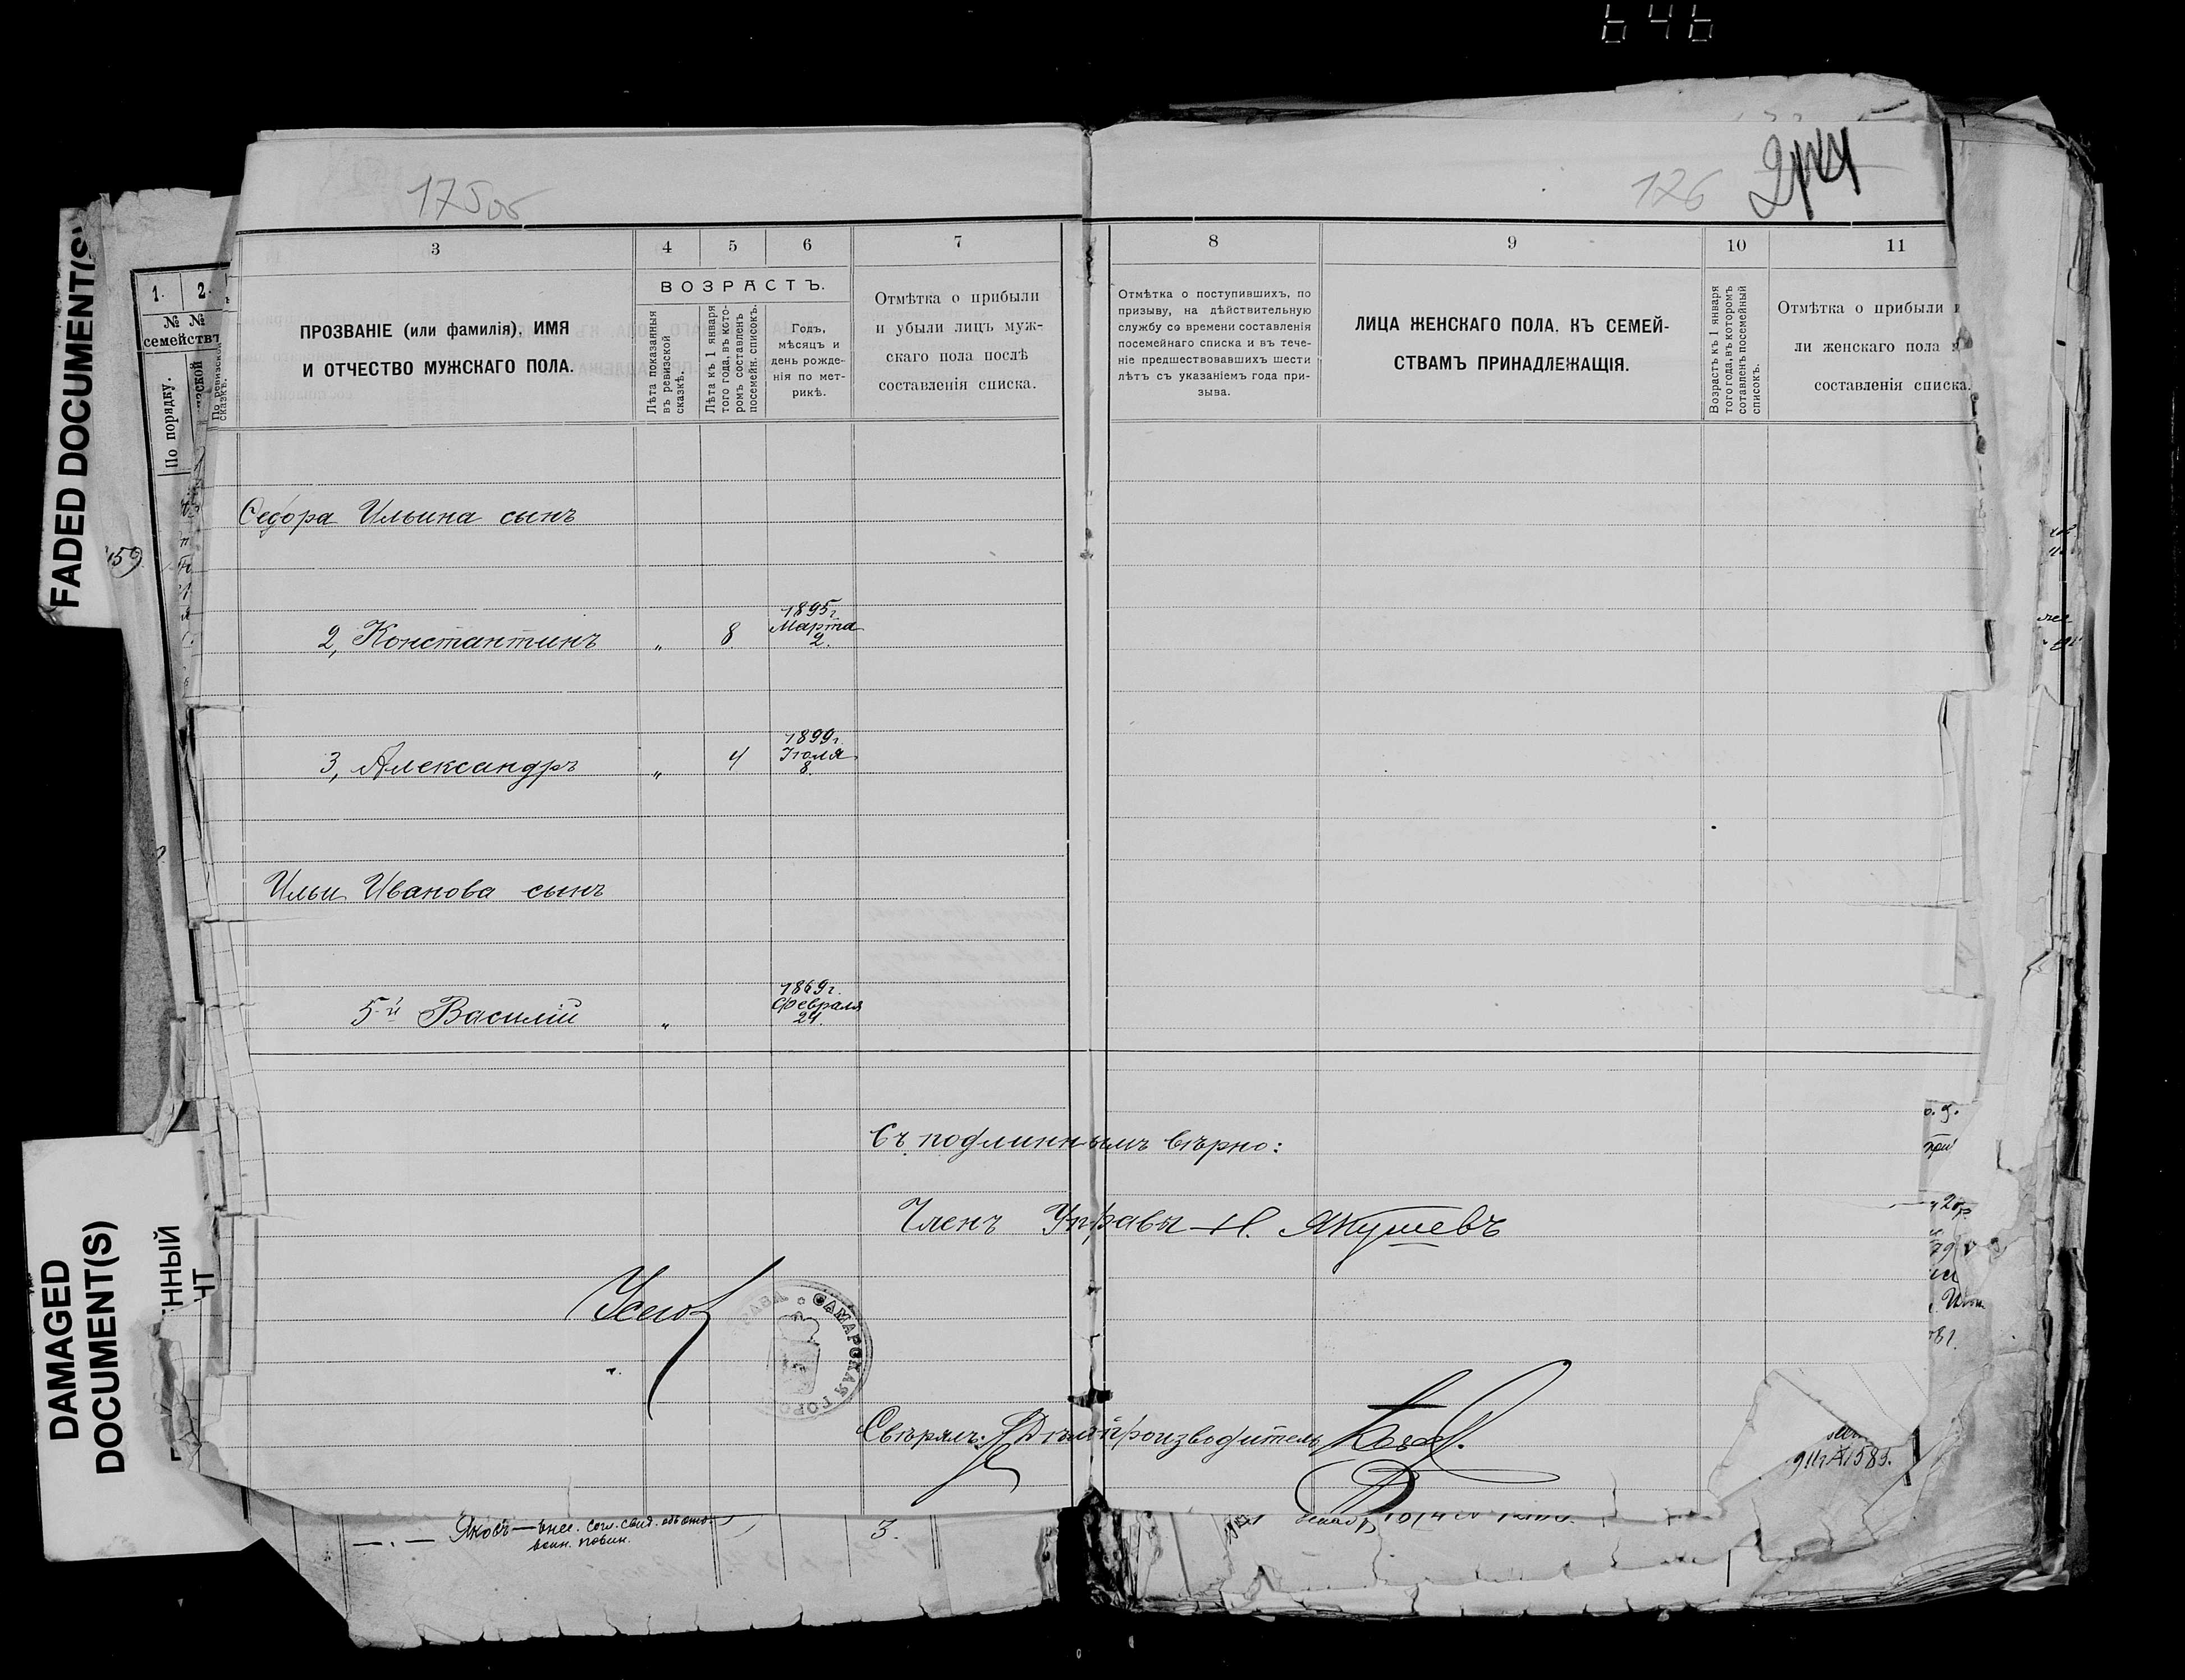 646
175об
126
3
4
5
6
7
8
9
10
11
1.
2.
№ №
семействъ
По порядку.
По ревизской
сказкѣ.
ПРОЗВАНІЕ (или фамилія), ИМЯ
И ОТЧЕСТВО МУЖСКАГО ПОЛА.
ВОЗРАСТЪ.
Лѣта показанныя
въ ревизской
сказкѣ.
Лѣта къ 1 января
того года, въ кото-
ромъ составленъ
посемейн. списокъ.
Годъ,
мѣсяцъ и
день рожде-
нія по мет-
рикѣ.
Отмѣтка о прибыли
и убыли лицъ муж-
скаго пола послѣ
составленія списка.
Отмѣтка о поступившихъ, по
призыву, на дѣйствительную
службу со времени составленія
посемейнаго списка и въ тече-
ніе предшествовавшихъ шести
лѣтъ съ указаніемъ года при-
зыва.
ЛИЦА ЖЕНСКАГО ПОЛА. КЪ СЕМЕЙ-
СТВАМЪ ПРИНАДЛЕЖАЩІЯ.
Возрастъ къ 1 января
того года, въ которомъ
сотавленъ посемейный
списокъ.
Отмѣтка о прибыли и
ли женскаго пола
составленія списка.
FADED DOCUMENT(S)
159
Ѳедора Ильина сынъ
2, Константинъ „ 8. 1895г. Марта 2.
3, Александръ „ 4 1899г. Іюля 8.
Ильи Иванова сынъ
5-й Василій „ 1869г. Февраля 24.
Съ подлиннымъ вѣрно:
Членъ Управы Н. Якушевъ
САМАРСКАЯ ГОРОД
Свѣрялъ: Дѣлопроизводитель
DAMAGED
DOCUMENT(S)
ННЫЙ
НТ
Яковъ — внес. согл. свид. объ ото
воин. повин.
3.